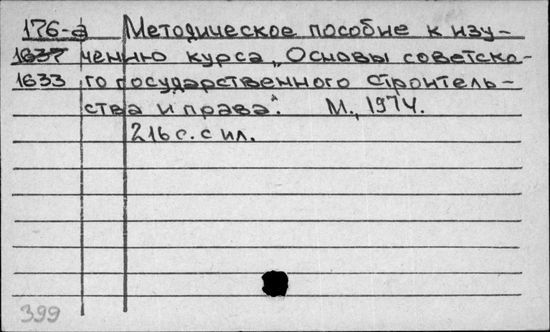 176-а Методическое пособие к изу-
1637 чению курса „Основы советско-
1633 го государственного строитель-
ства и права". М., 1974.
216 с. с ил.
399